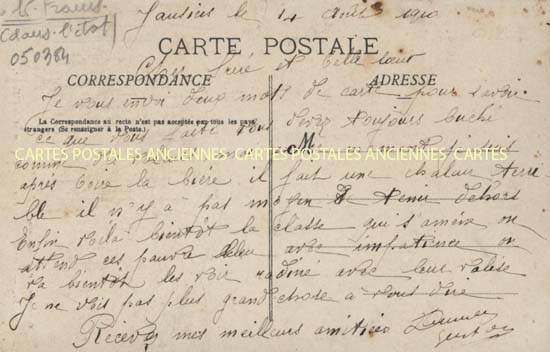 Jausiers le 14 Août 1910
(dans l'état)
050384
CARTE POSTALE
Cher frère et belle sœur
CORRESPONDANCE ADRESSE
Je vous envoi deux mots de carte pour savoir
La Correspondance au recto n'est pas acceptée par tous les pays
étrangers (Se renseigner à la Poste.)
ce que vous faite vous devez toujours
M
CARTES POSTALES ANCIENNES CARTES POSTALES ANCIENNES CARTES
après boire la bière il fait une chaleur terri
ble il n'y a pas moyen de tenir dehors
Enfin voila bientôt la classe qui s'amène on
attend ces pauvre bleu avec impatience on
va bientôt les voir radiné avec leur valise
Je ne vois pas plus grand chose à vous dire
Recevez mes meilleurs amitiés